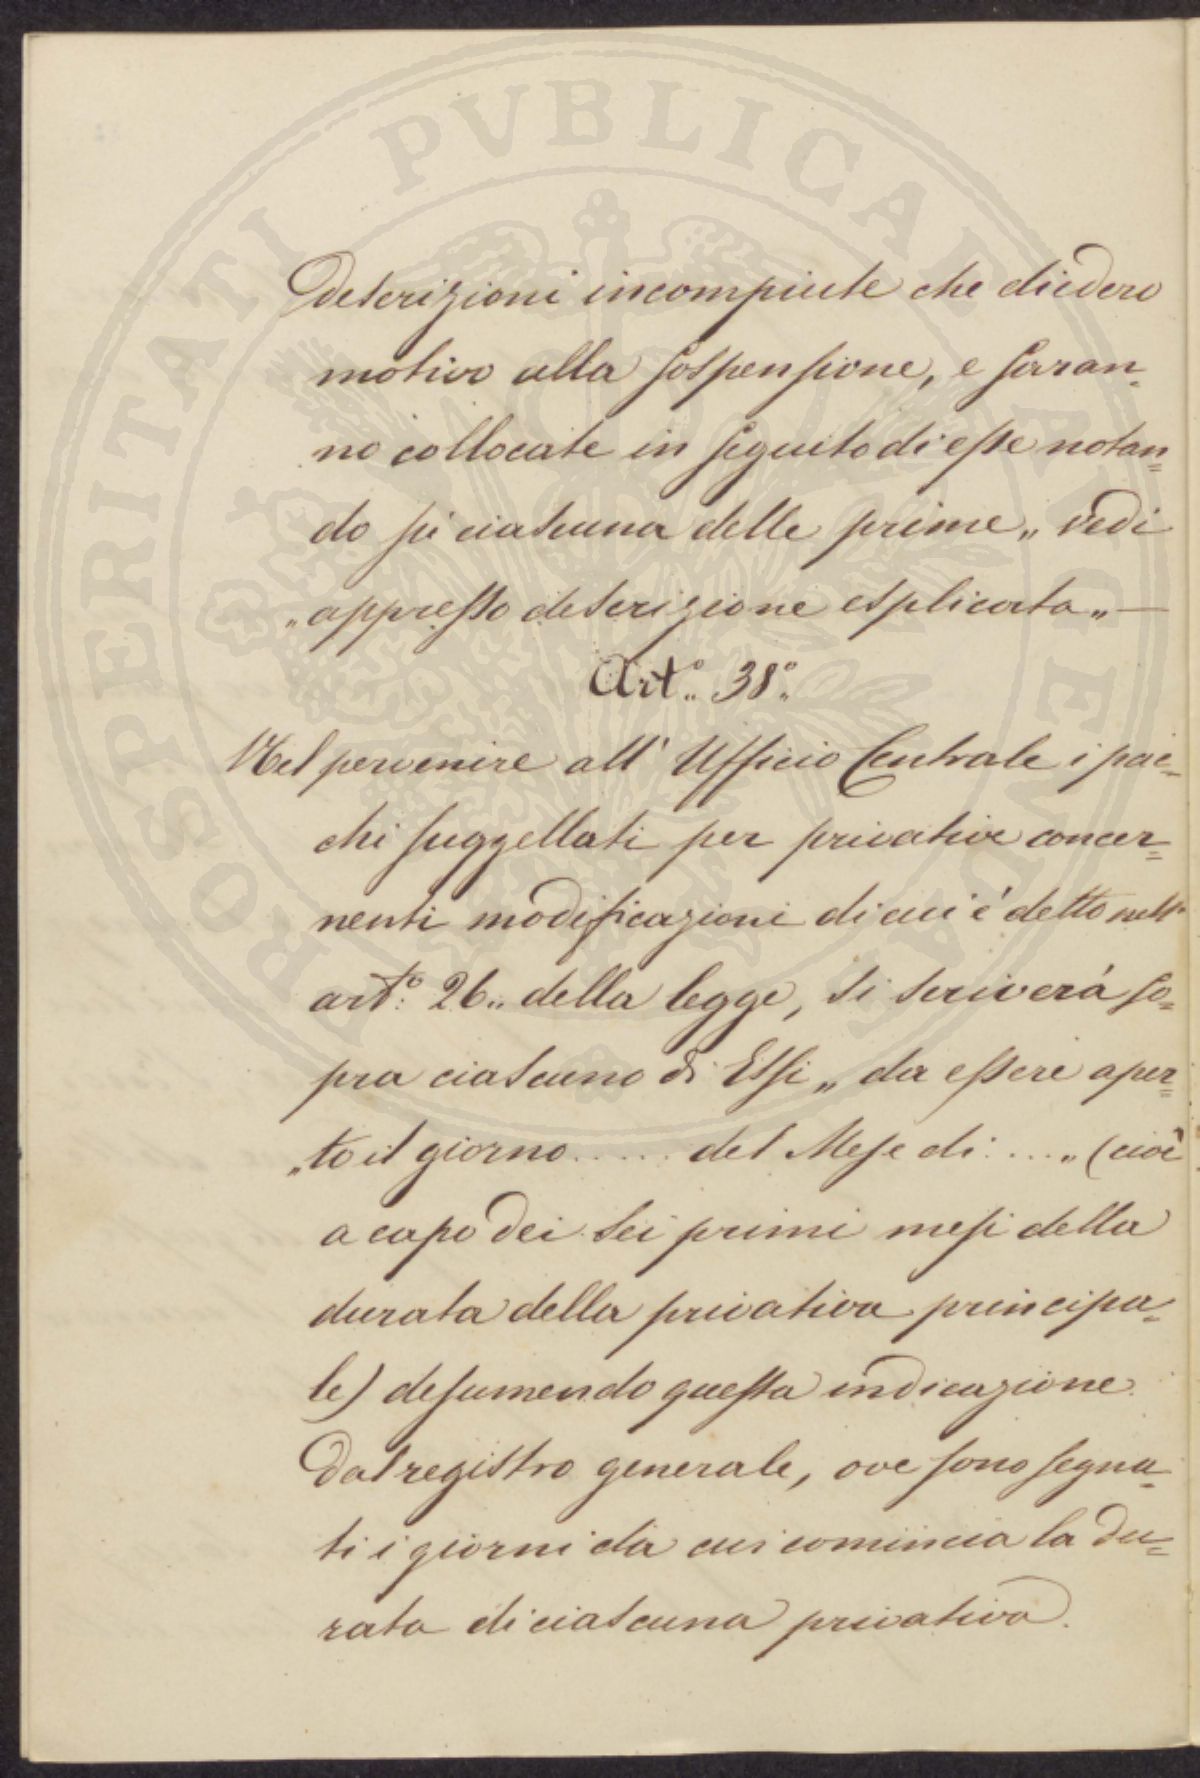 PROSPERITATI PVBLICAE AVGENDAE
descrizioni incompiute che diedero
motivo alla sospensione, e saran=
no collocate in seguito di esse notan=
do si ciascuna delle prime „ vedi
„ appresso descrizione esplicata „ —
Art.° 38.°
Nel pervenire all' Ufficio Centrale i pac=
chi suggellati per privative concer=
nenti modificazioni di cui é detto nell'
art.° 26.. della legge, si scriverá so=
pra ciascuno di Essi „ da essere aper=
„ to il giorno ...... del Mese di .... „ (cioè
a capo dei sei primi mesi della
durata della privativa principa=
le) desumendo questa indicazione
dal registro generale, ove sono segna=
ti i giorni da cui comincia la du=
rata di ciascuna privativa.